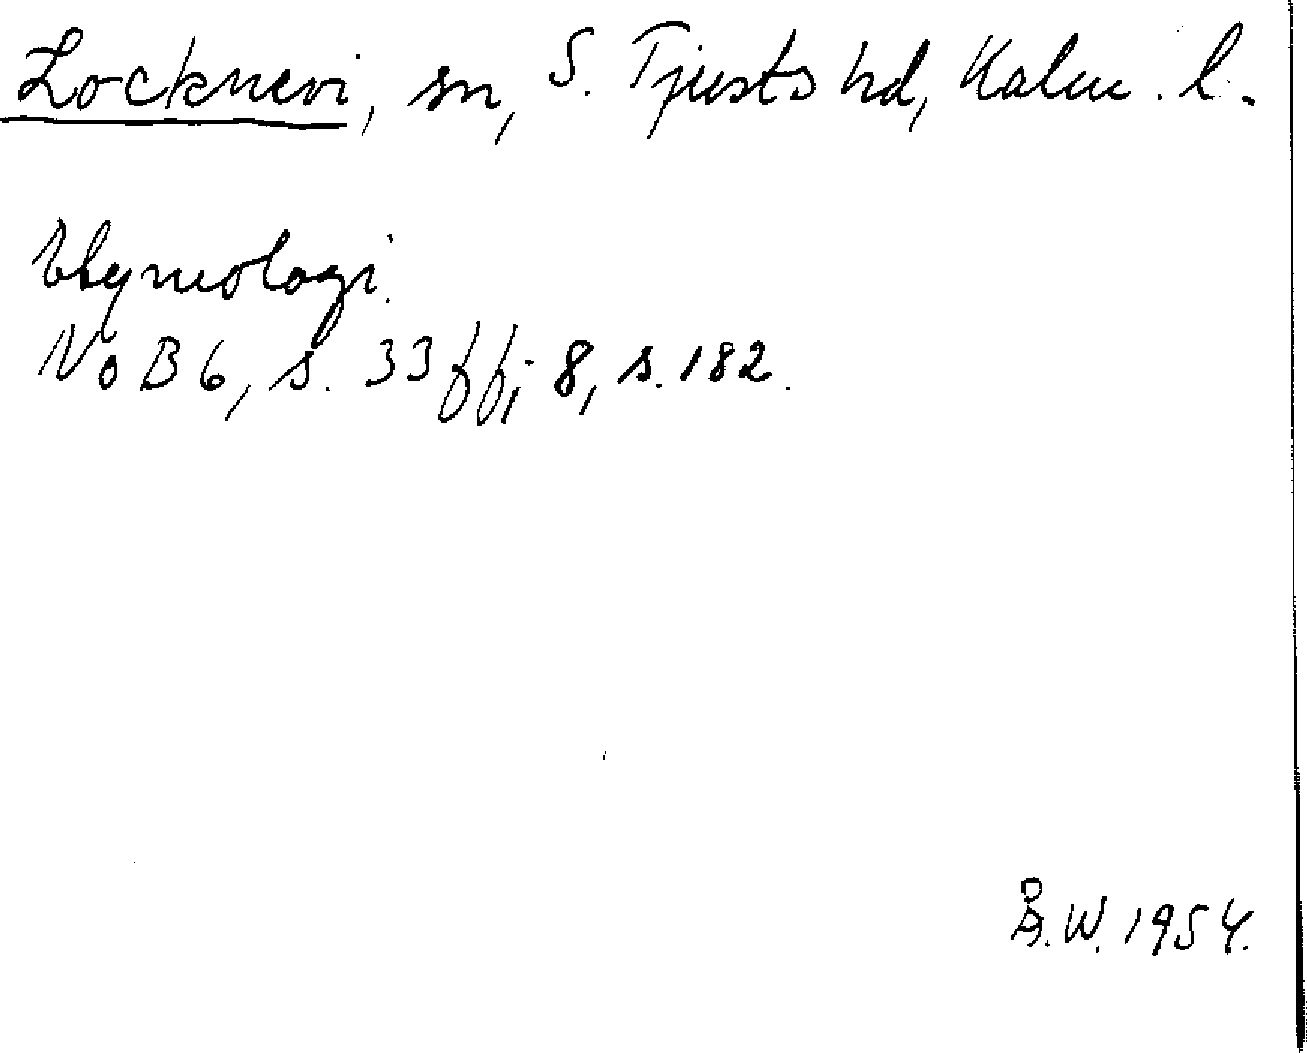 Locknevi, sn, S. Tjusts hd, Kalm. l.
Etymologi.
NoB 6, s. 33 ff; 8, s. 182.
Å.W. 1954.